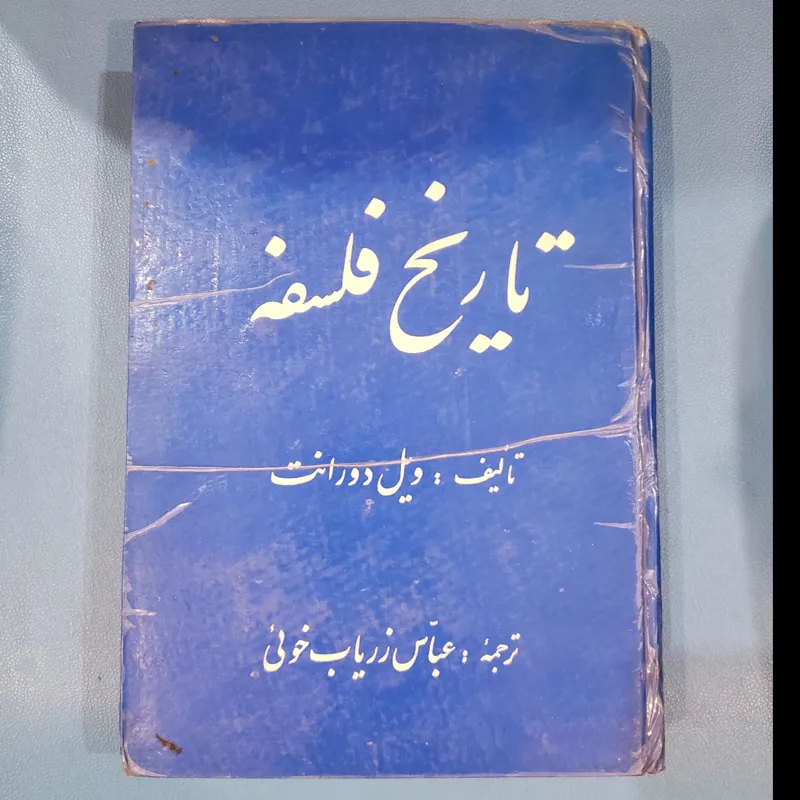 تاریخ فلسفه
تألیف : ویل دورانت
ترجمهٔ : عبّاس زریاب خوئی